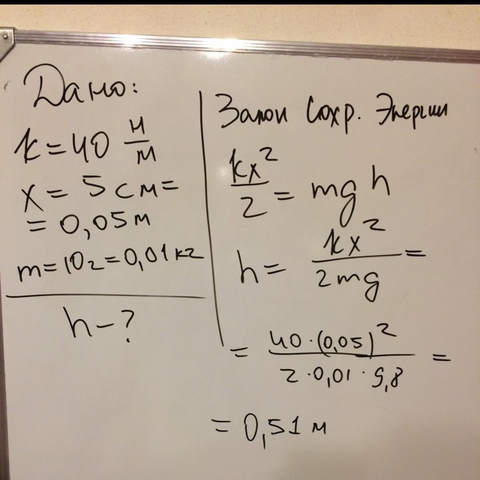 Дано:
k=40 Н/м
x = 5 см=
= 0,05 м
m=10г=0,01 кг
h-?
Закон Сохр. Энергии
kx²/2 = mgh
h = kx²/2mg =
= 40·(0,05)²/2·0,01·9,8 =
= 0,51 м